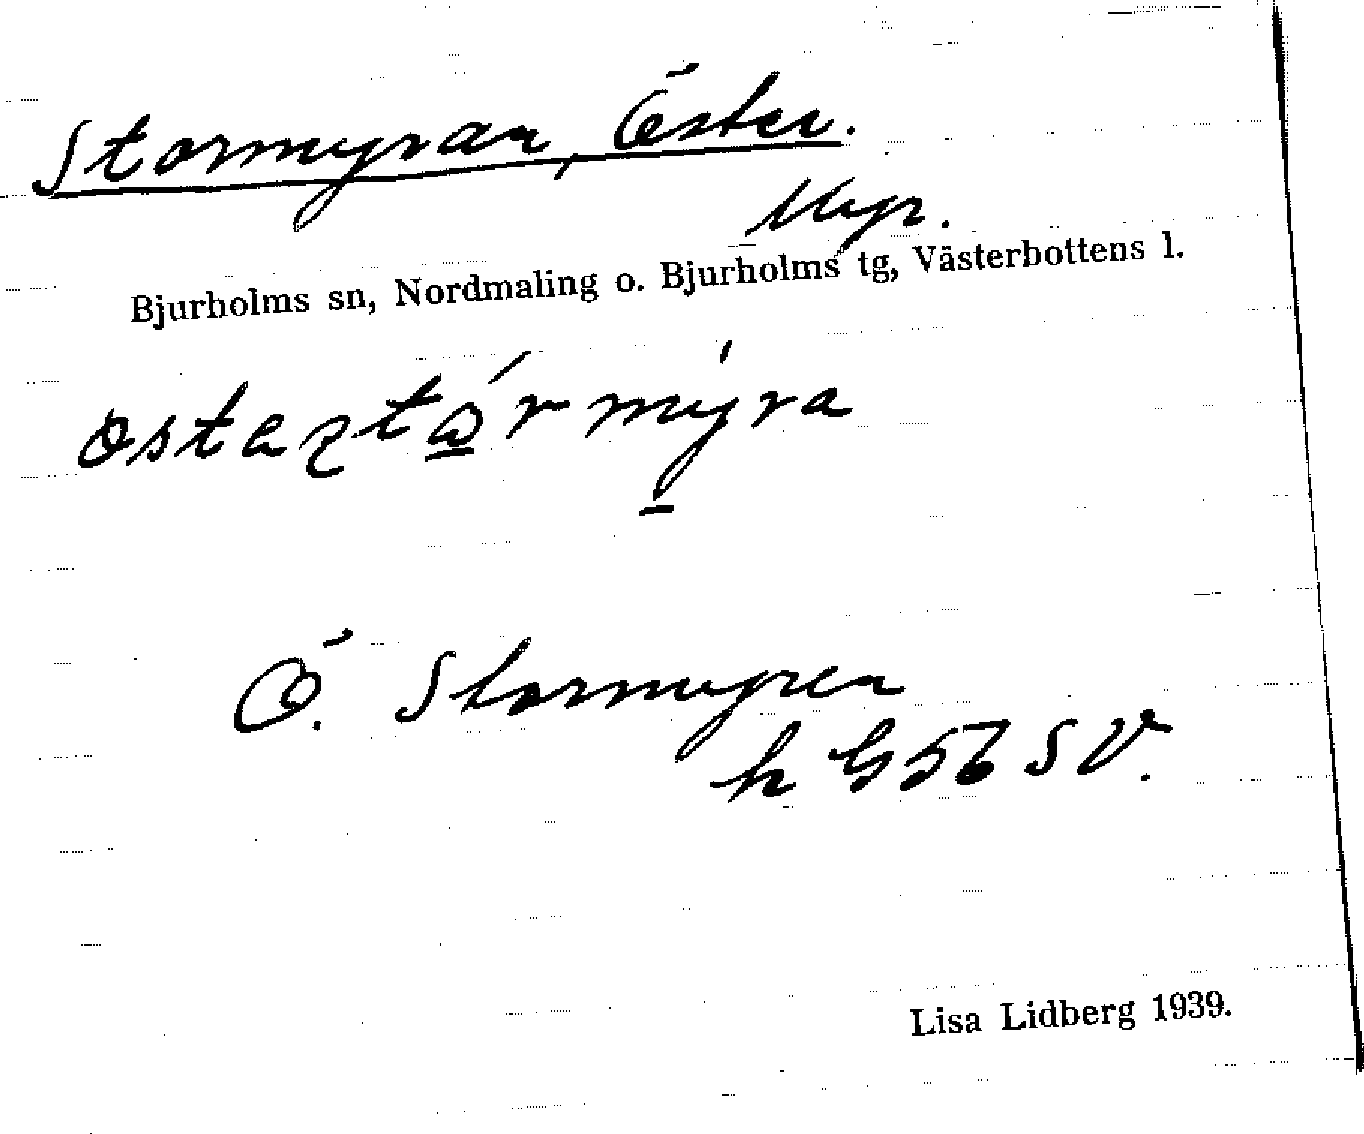 Stormyran, Öster.
Myr.
Bjurholms sn, Nordmaling o. Bjurholms tg, Västerbottens l.
Ö. Stormyren
h G56 SV.
Lisa Lidberg 1939.